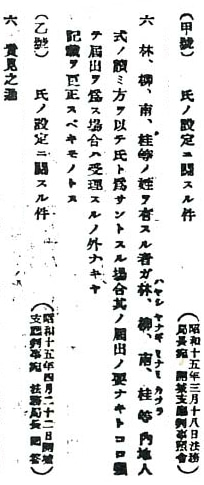 (甲號)　氏ノ設定ニ關スル件
(昭和十五年三月十八日法務局長宛　開城支廳判事照會)
六　林、柳、南、桂等ノ姓ヲ有スル者ガ林、柳、南、桂等內地人
ハヤシ　ヤナギ　ミナミ　カツラ
式ノ讀ミ方ヲ以テ氏ト爲サントスル場合其ノ屆出ノ要ナキトコロ强
テ屆出ヲ爲ス場合ハ受理スルノ外ナキヤ
記載ヲ更正スベキモノトス
(乙號)　氏ノ設定ニ關スル件
(昭和十五年四月二十二日開城支廳判事宛　法務局長回答)
六　貴見之通